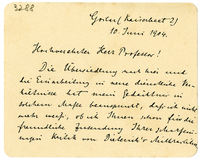 3288
Goslar (Kaiserbleek 2)
10. Juni 1904.
Hochverehrter Herr Professor!
Die Übersiedlung nach hier und
die Einarbeitung in neue dienstliche Ver-
hältnisse hat mein Gedächtnis in
solchem Maße beansprucht, daß ich nicht
mehr weiß, ob ich Ihnen schon für die
freundliche Zusendung Ihrer
Kritik von